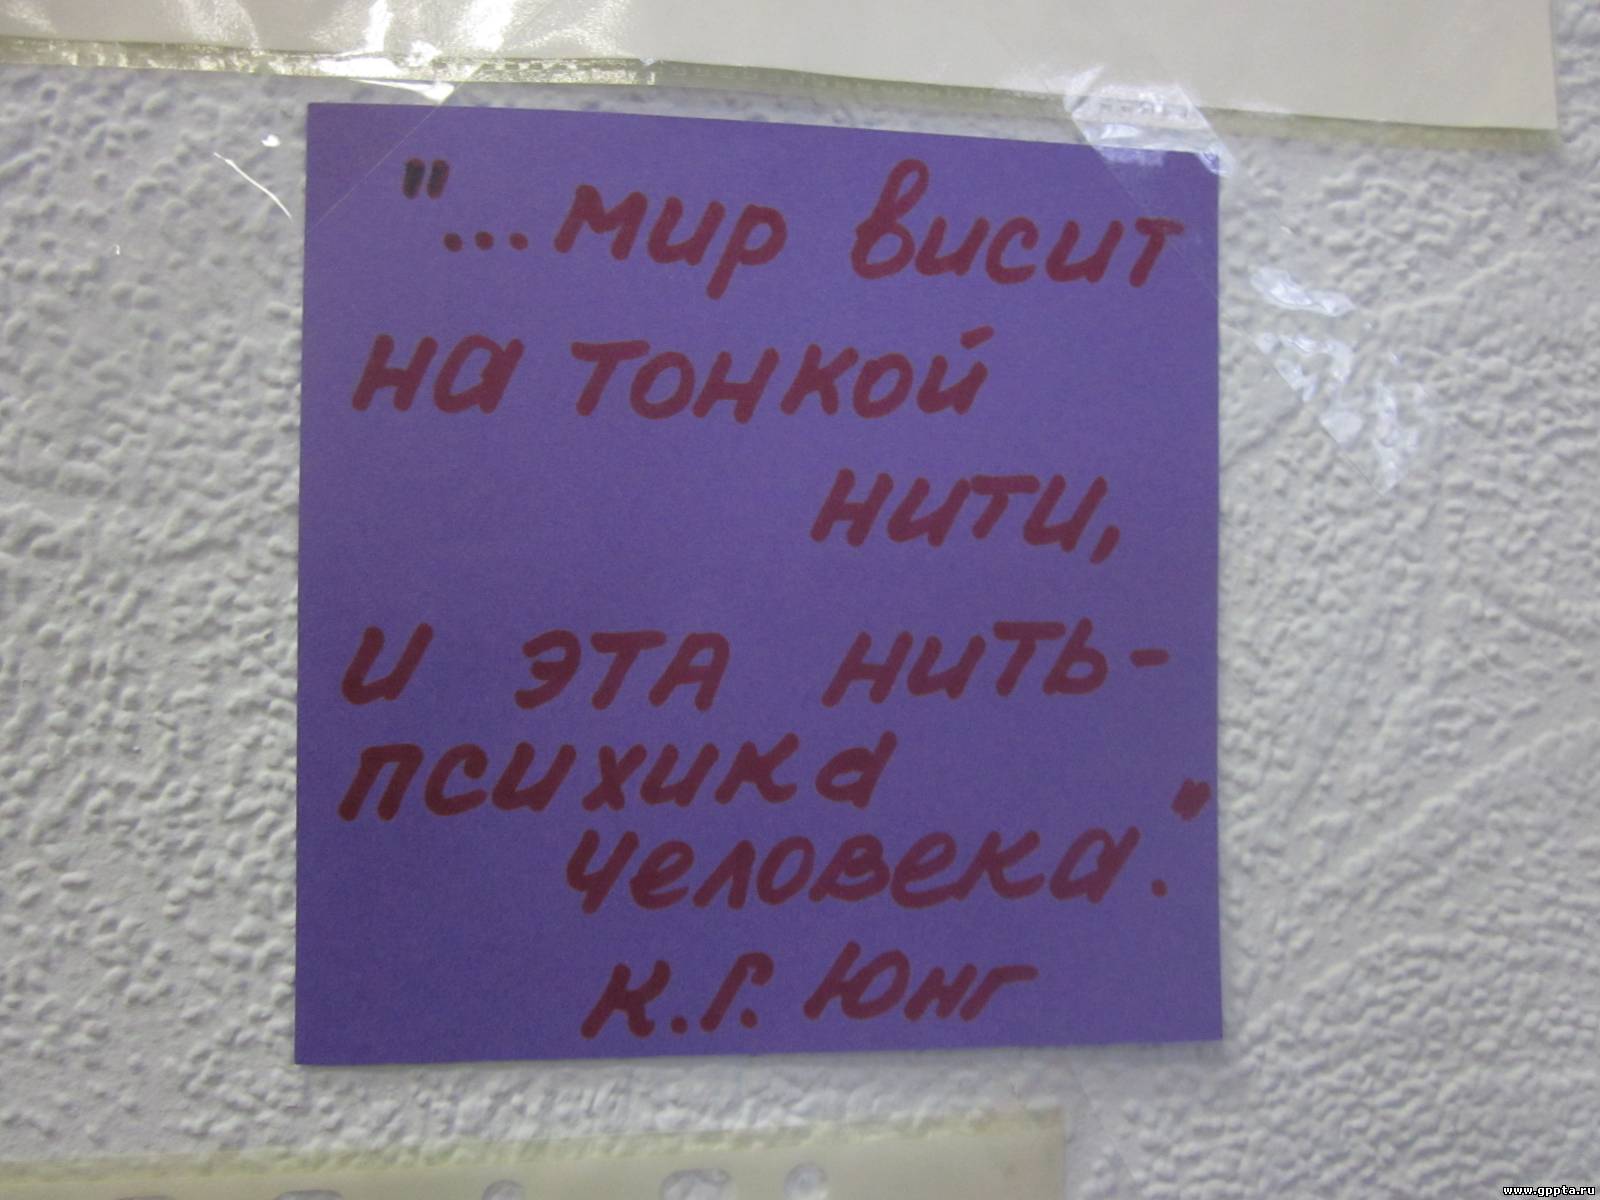 "...мир висит
на тонкой
нити,
и эта нить-
психика
человека."
К.Г. Юнг
www.gppta.ru